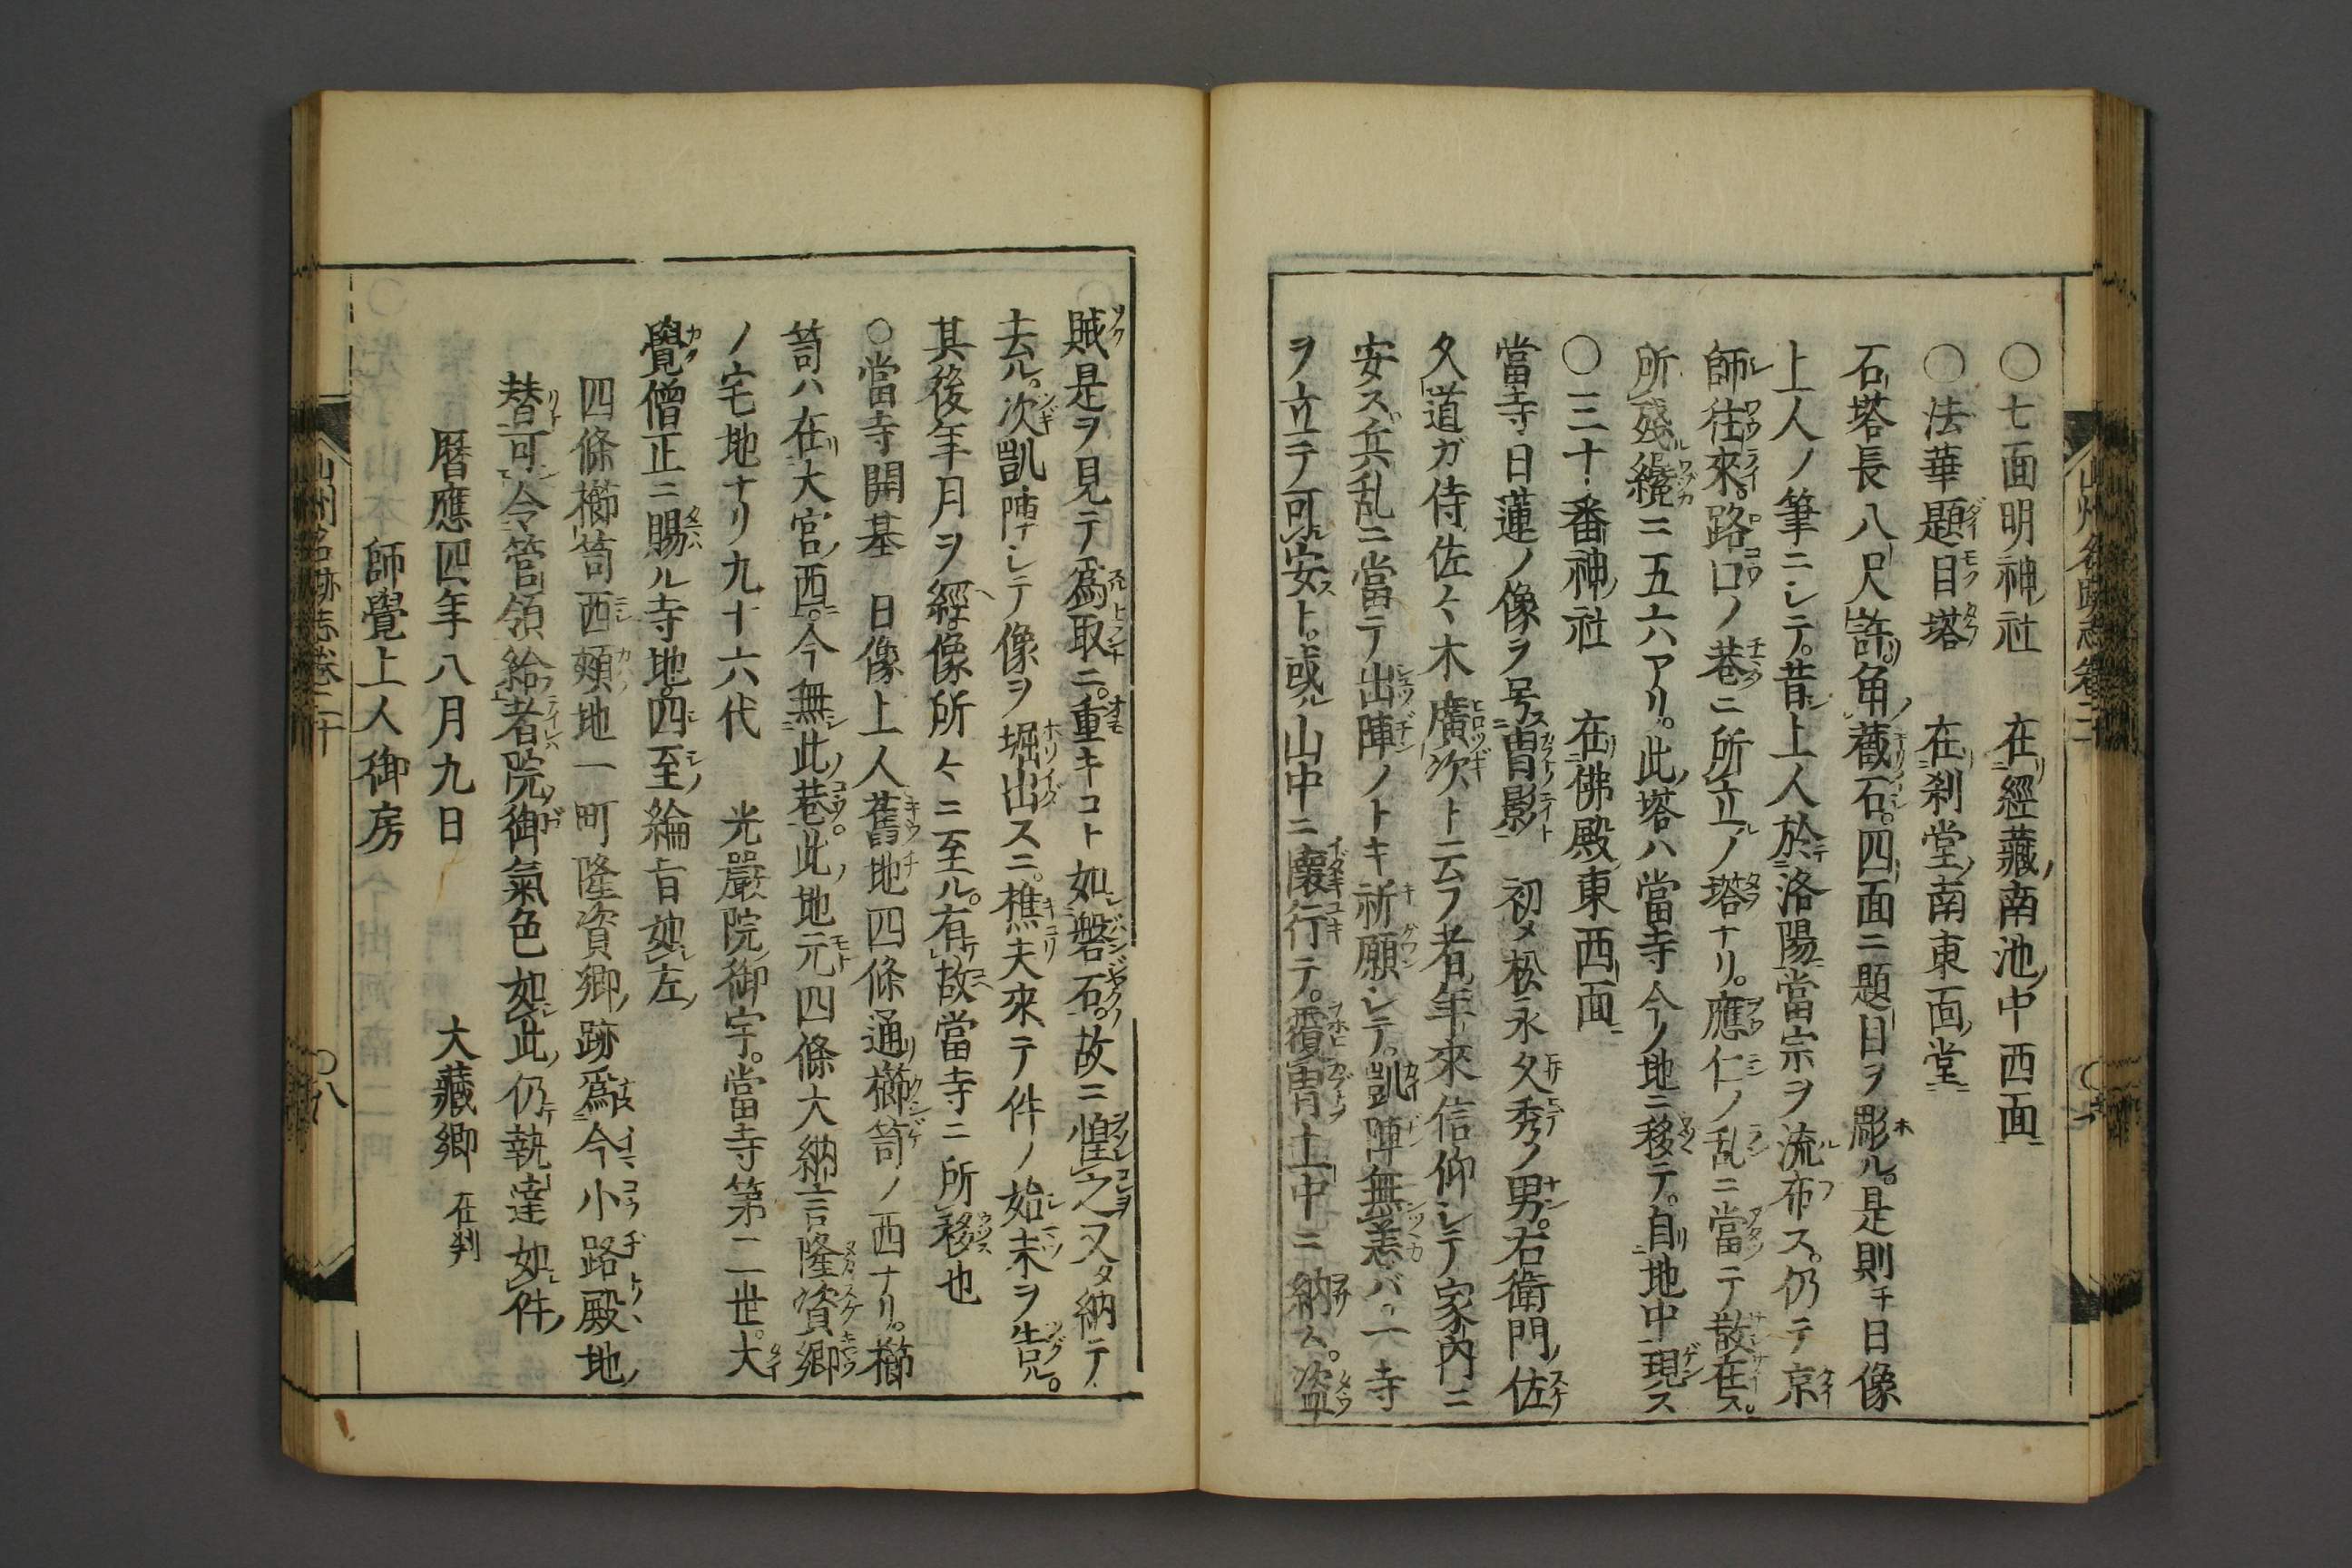 ○七面明神社　在經藏南池中西面
○法華題目塔　在刹堂南東面堂
石塔長八尺許角藏石四面ニ題目ヲ彫ル。是則チ日像
上人ノ筆ニシテ。昔シ上人於洛陽當宗ヲ流布ス。仍テ京
師往來。路口ノ巷ニ所立ノ塔ナリ。應仁ノ乱ニ當テ散在ス。
所殘纔ニ五六アリ。此塔ハ當寺今ノ地ニ移テ。自地中現ス
○三十番神社　在佛殿東西面
當寺日蓮ノ像ヲ号ス冑影　初メ松永久秀ノ男。右衛門佐
久道ガ侍佐々木廣次ト云フ者。年來信仰シテ家內ニ
安ス。兵乱ニ當テ出陣ノトキ祈願シテ。凱陣無恙バ。一寺
ヲ立テ可安ト。或ル山中ニ懷行テ。覆冑土中ニ納ム。盗
賊是ヲ見テ爲取ニ。重キコト如磐石。故ニ惶之又タ納テ
去ル。次凱陣シテ像ヲ堀出スニ。樵夫來テ件ノ始末ヲ告ク。
其後年月ヲ經。像所々ニ至ル。有故當寺ニ所移也
○當寺開基　日像上人舊地四條通櫛笥ノ西ナリ。櫛
笥ハ在大宮西。今無此巷。此地元四條大納言隆資卿
ノ宅地ナリ九十六代　光嚴院御宇。當寺第二世。大
覺僧正ニ賜ル寺地。四至綸旨如左
四條櫛笥西頰地一町隆資卿跡爲今小路殿地
替可令管領給者院御氣色如此仍執達如件
曆應四年八月九日　大藏卿 在判
師覺上人御房
山州名跡志卷二十
○八